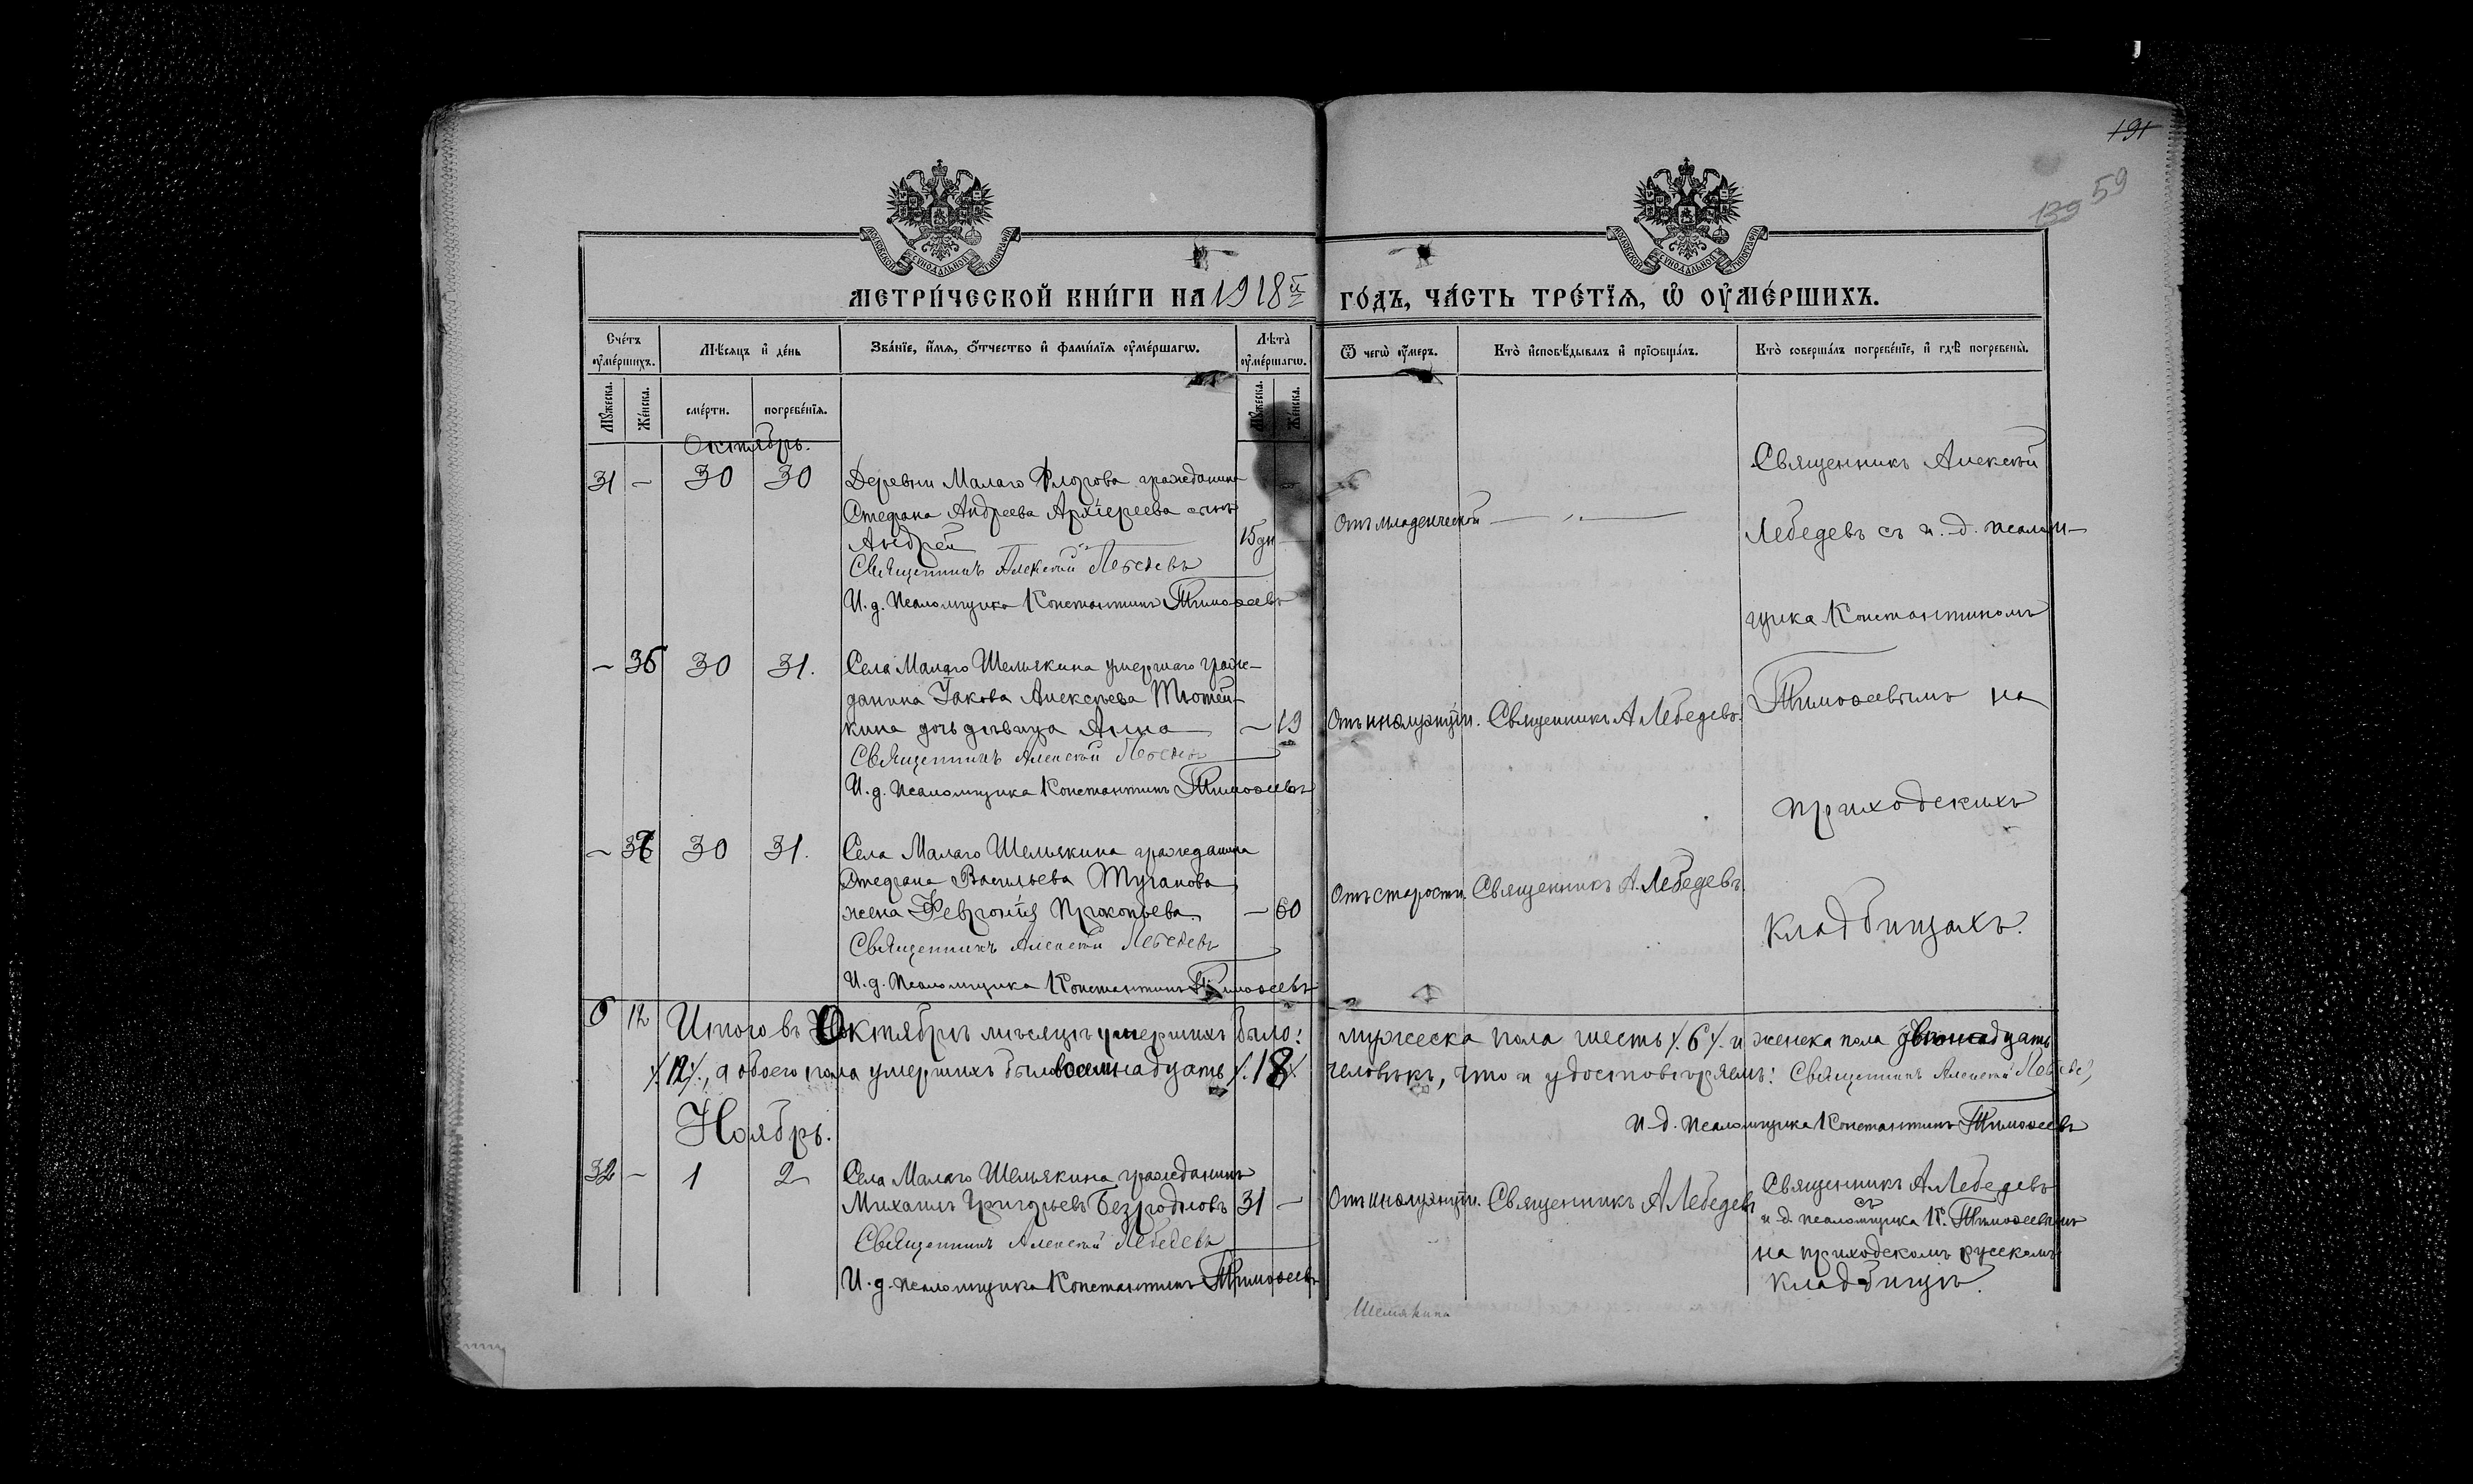 191
139 59
МОСКОВСКОЙ СУНОДАЛЬНОЙ ТИПОГРАФІИ
МОСКОВСКОЙ СУНОДАЛЬНОЙ ТИПОГРАФІИ
МЕТРИ́ЧЕСКОЙ КНИ́ГИ НА 1918й ГО́ДЪ, ЧА́СТЬ ТРЕ́ТЇѦ, Ѡ҆ ОУ҆МЕ́РШИХЪ.
Сче́тъ оу҆ме́ршихъ.
Мѣ́сяцъ и҆ де́нь
Зва́нїе, и҆́мѧ, ѻ҆́тчество и҆ фами́лїѧ оу҆ме́ршагѡ.
Лѣ́та оу҆ме́ршагѡ.
Ѿ чегѡ̀ оу҆́меръ.
Кто̀ и҆сповѣ́дывалъ и҆ прїѡбща́лъ.
Кто̀ соверша́лъ погребе́нїе, и҆ гдѣ̀ погребены̀.
Мꙋ́жеска.
Же́нска.
сме́рти.
погребе́нїѧ.
Мꙋ́жеска.
Же́нска.
Октябрь.
31 – 30 30 Деревни Малаго гражданина
Стефана Андреева Архіереева сынъ
Андрей 15 дн
Священникъ Алексѣй Лебедевъ
И. д. Псаломщика Константинъ Тимоѳеевъ
Отъ младенческой — „ —
Священникъ Алексѣй
Лебедевъ съ и. д. псалом-
щика Константиномъ
Тимоѳеевымъ на
приходскихъ
кладбищахъ.
– 36 30 31. Села Малаго Шемякина умершаго граж-
данина Іакова Алексѣева Тютей-
кина дочь дѣвица Анна – 19
Священникъ Алексѣй Лебедевъ
И. д. Псаломщика Константинъ Тимоѳеевъ
Отъ инфлуэнціи. Священникъ А Лебедевъ.
– 37 30 31. Села Малаго Шемякина гражданина
Стефана Васильева Туганова
жена Февронія Прокопьева. – 60
Священникъ Алексѣй Лебедевъ
И. д. Псаломщика Константинъ Тимоѳеевъ
Отъ старости. Священникъ А. Лебедевъ.
6 12 Итого въ Октябрѣ мѣсяцѣ умершихъ было: мужеска пола шесть /.6/. и женска пола двѣнадцать
/.12/., а обоего пола умершихъ было восемнадцать /.18/. человѣкъ, что и удостовѣряемъ: Священникъ Алексѣй Лебедев
И. д. Псаломщика Константинъ Тимоѳеевъ
Ноябрь.
32 – 1 2 Села Малаго Шемякина гражданинъ
Михаилъ Григорьевъ Безродновъ 31 –
Священникъ Алексѣй Лебедевъ
И. д. псаломщика Константинъ Тимоѳеевъ
Отъ инфлуэнціи. Священникъ А Лебедевъ
Священникъ А Лебедевъ
съ
и. д. псаломщика К. Тимоѳеевымъ
на приходскомъ русскомъ
кладбищѣ.
Шемякина